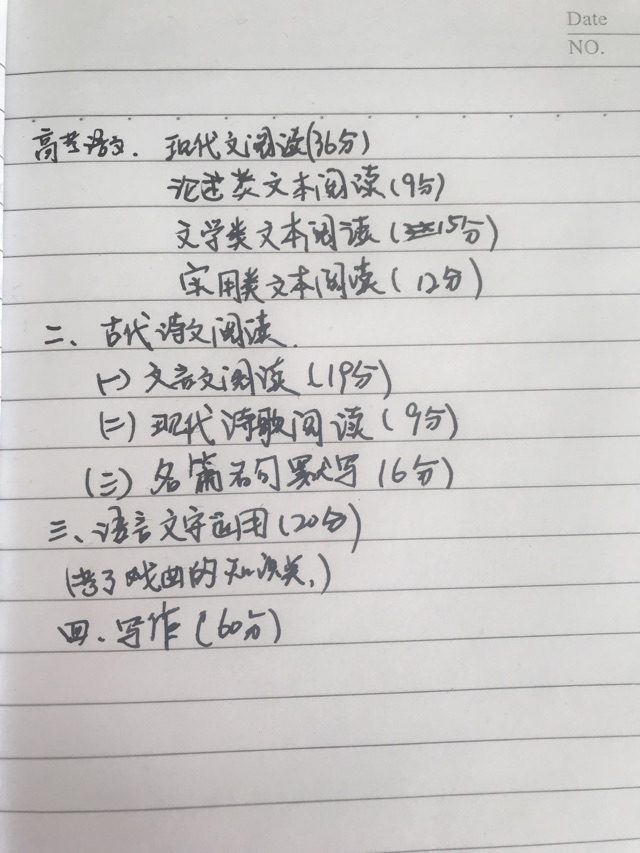 Date
NO.
高考语文. 现代文阅读(36分)
论述类文本阅读(9分)
文学类文本阅读(15分)
实用类文本阅读(12分)
二、古代诗文阅读.
(一)文言文阅读(19分)
(二)现代诗歌阅读(9分)
(三)名篇名句默写(6分)
三、语言文字运用(20分)
(考了戏曲的知识类,)
四、写作(60分)